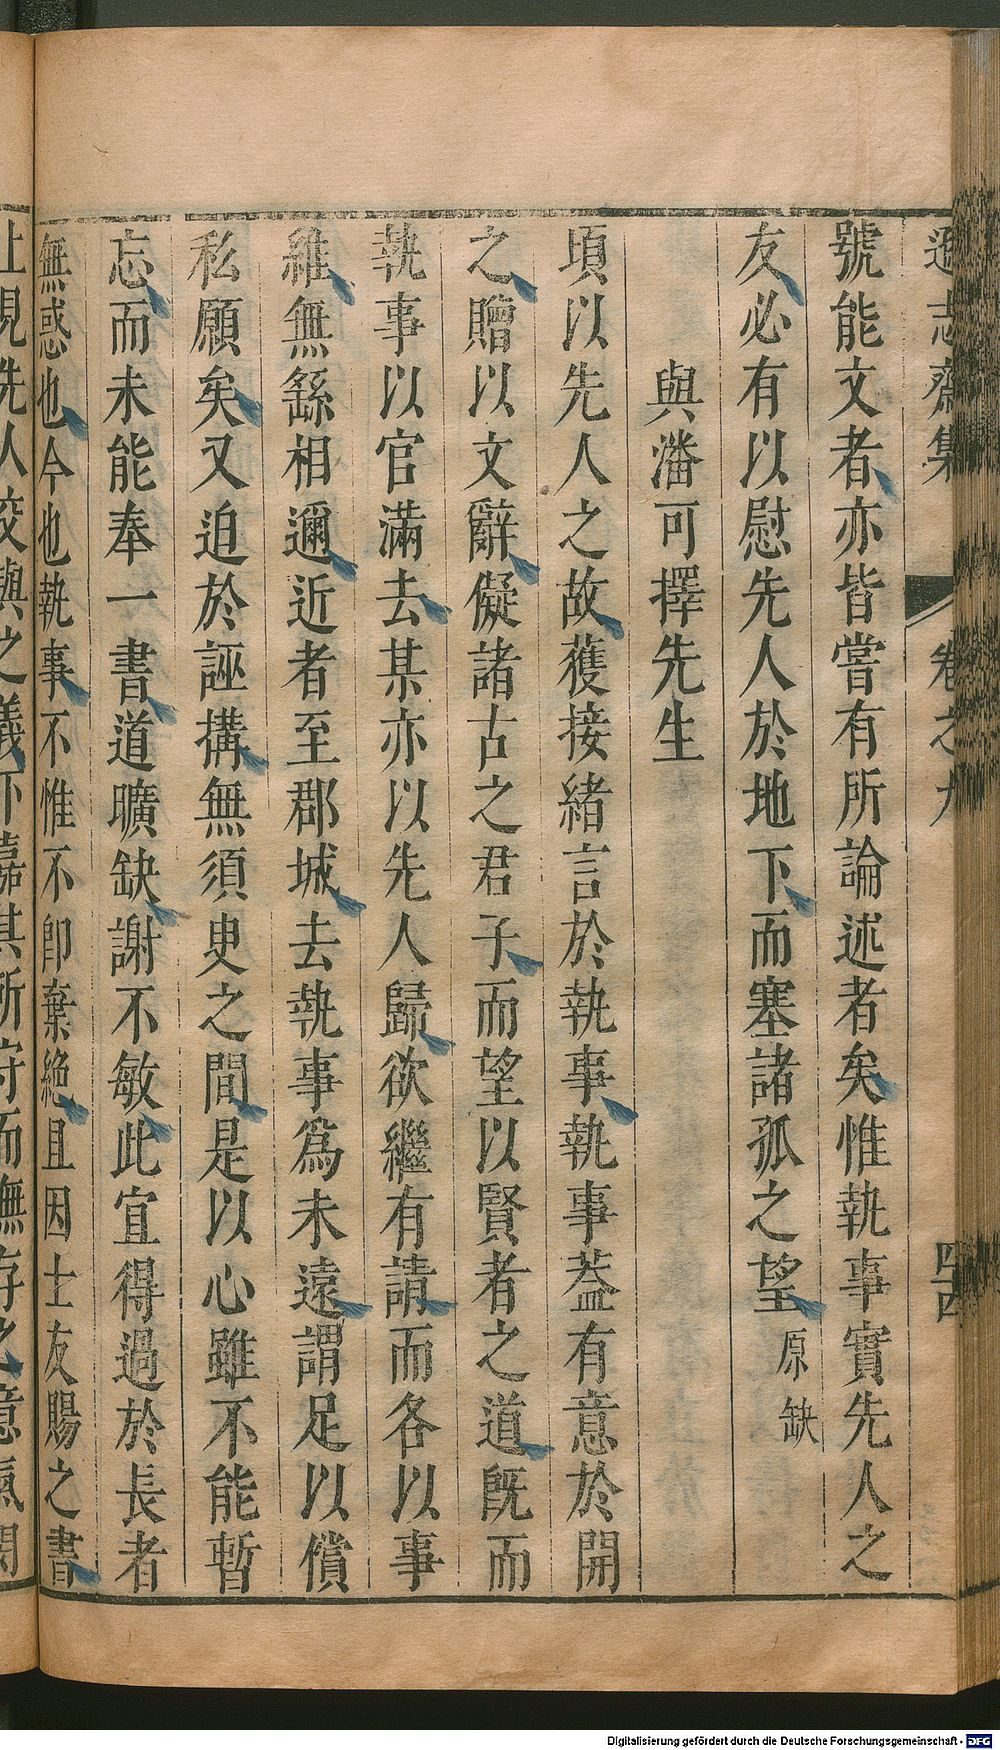 遜志齋集
卷之九
四四
號能文者亦皆嘗有所論述者矣惟執事實先人之
友必有以慰先人於地下而塞諸孤之望原缺
與潘可擇先生
頃以先人之故獲接緒言於執事執事葢有意於開
之贈以文辭儗諸古之君子而望以賢者之道旣而
執事以官滿去某亦以先人歸欲繼有請而各以事
維無繇相邇近者至郡城去執事爲未遠謂足以償
私願矣又迫於誣搆無須臾之間是以心雖不能暫
忘而未能奉一書道曠缺謝不敏此宜得過於長者
無惑也今也執事不惟不卽棄絶且因士友賜之書
止現先人交與之義
嘉其所
而憮存之意氣
Digitalisierung gefördert durch die Deutsche Forschungsgemeinschaft - DFG